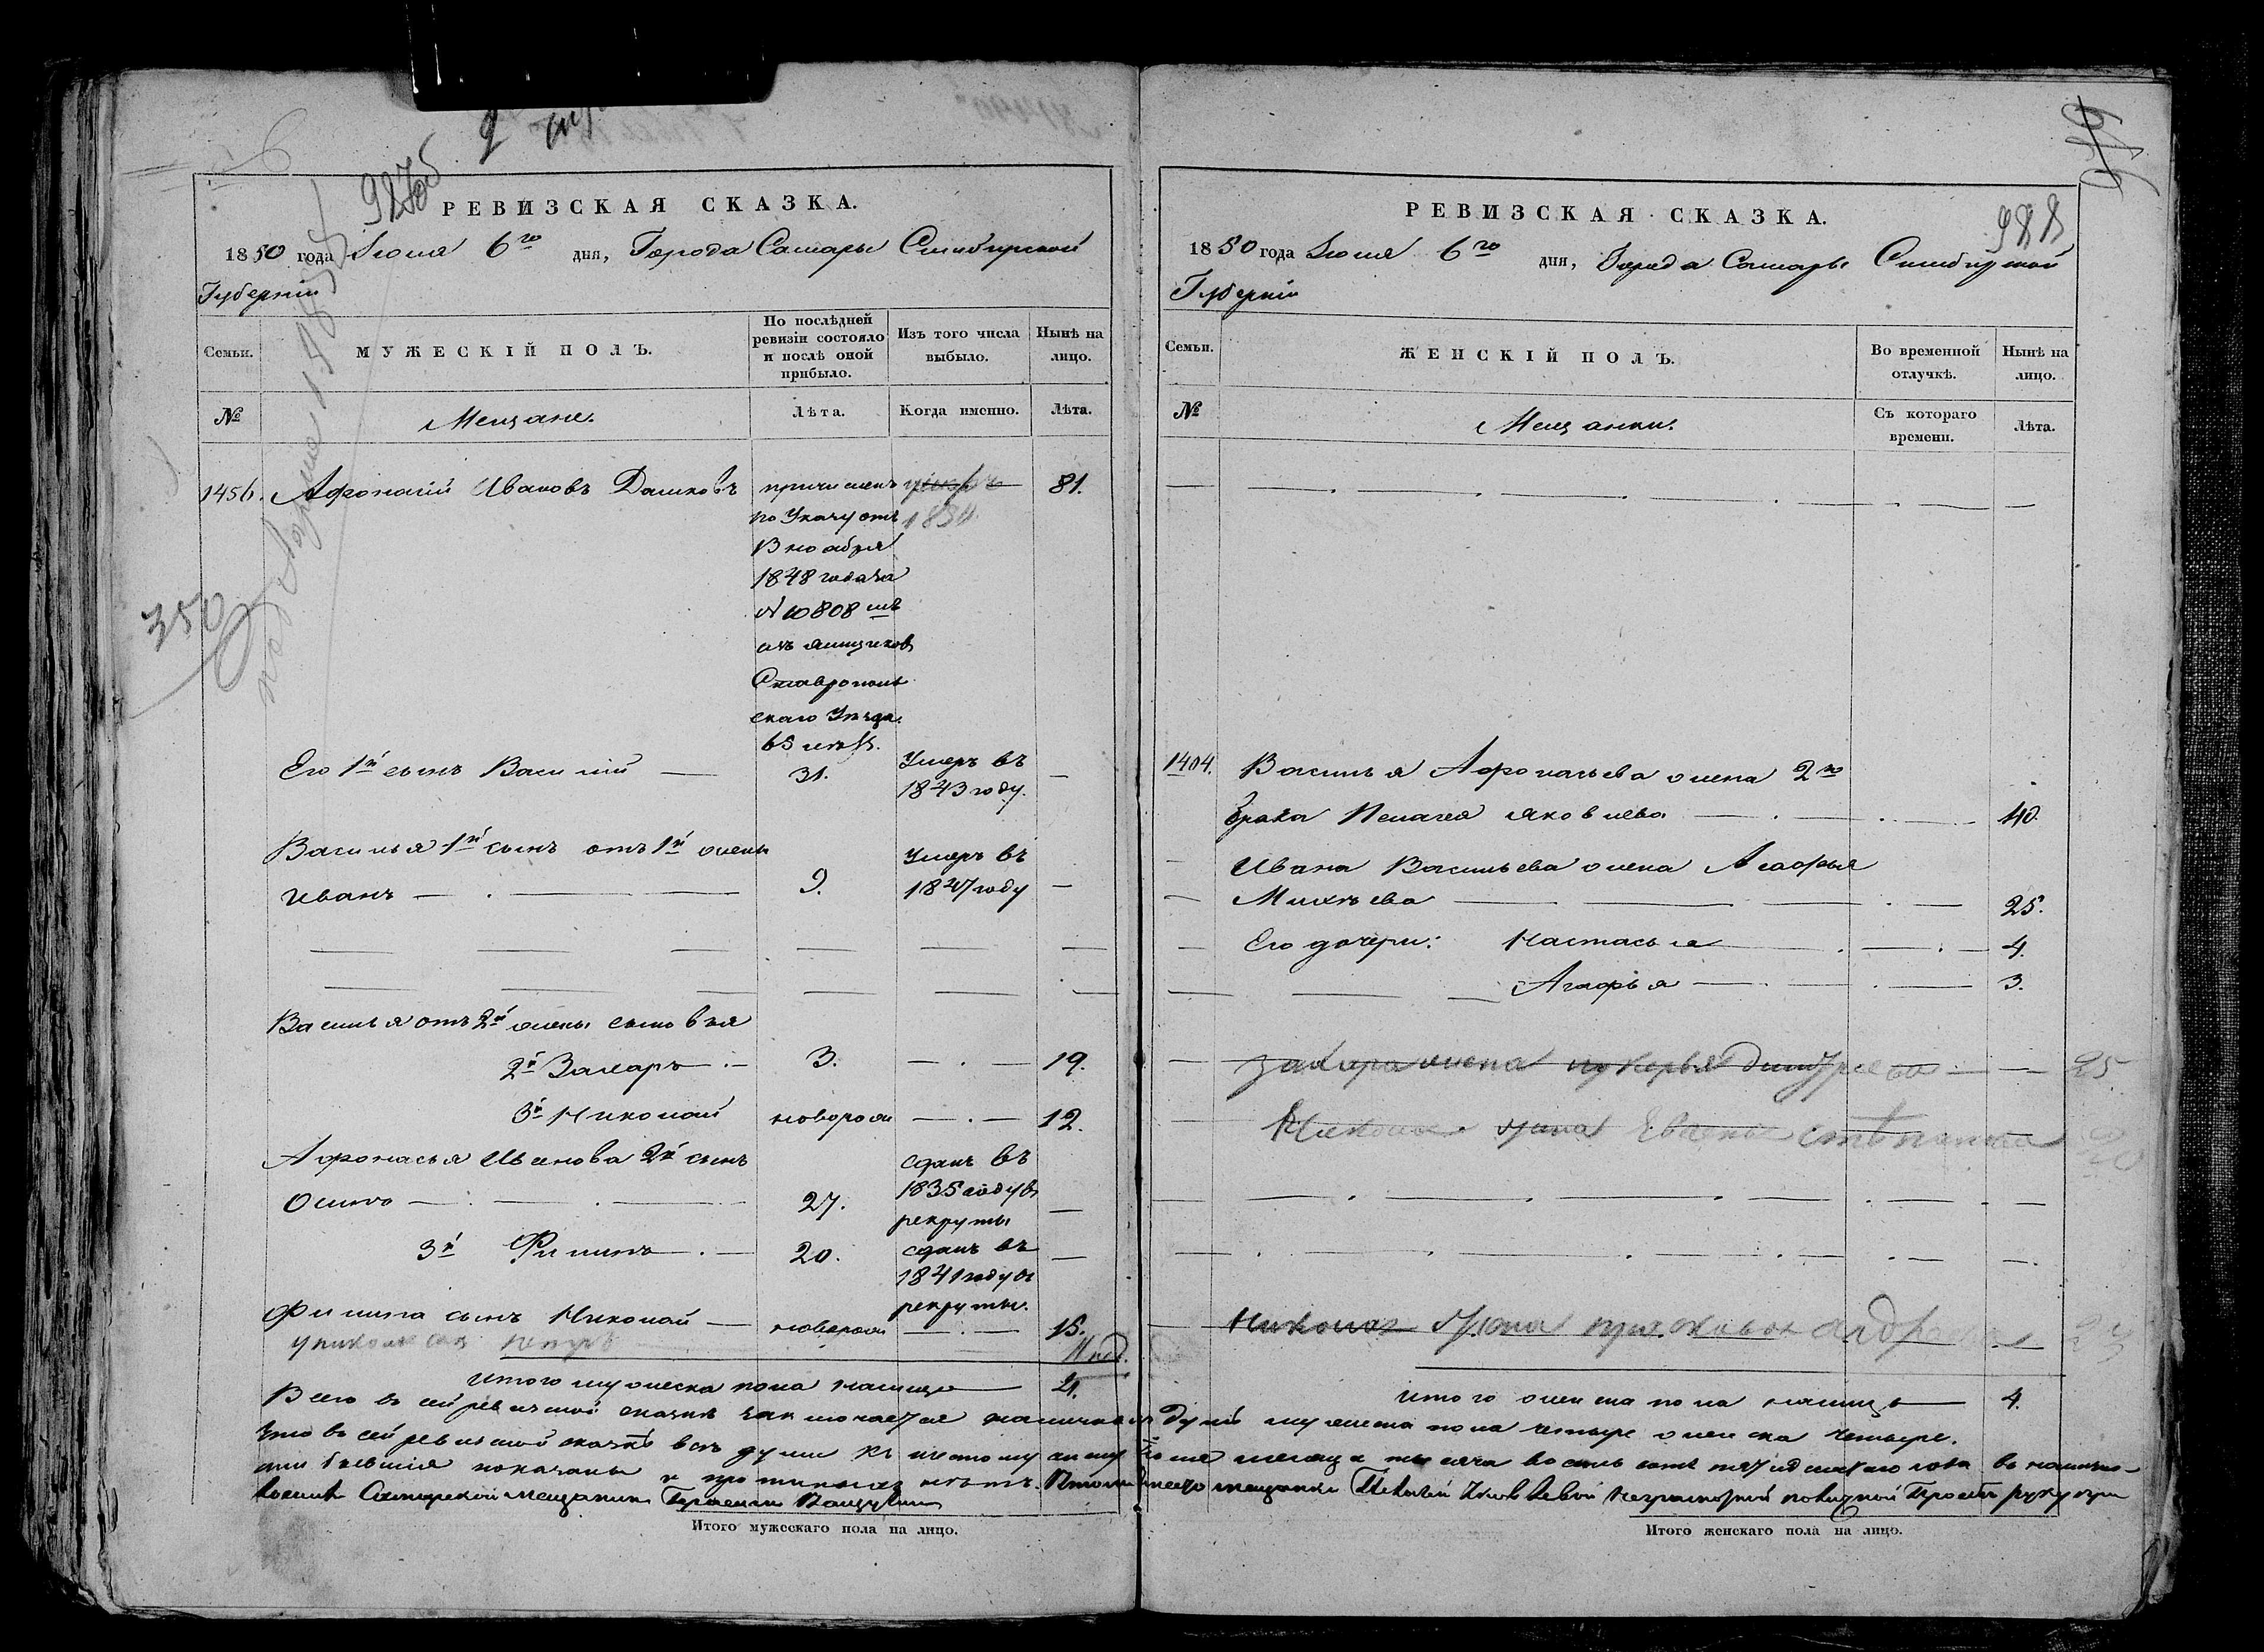 927 об
РЕВИЗСКАЯ СКАЗКА.
1850 года Июня 6го дня, Города Самары Симбирской
Губерніи
Семьи.
МУЖЕСКІЙ ПОЛЪ.
По послѣдней ревизіи состояло и послѣ оной прибыло.
Изъ того числа выбыло.
Нынѣ на лицо.
№
Мещане.
Лѣта.
Когда именно.
Лѣта.
350
1456. Афонасій Ивановъ Дашковъ
причисленъ
по Указу отъ
8 ноября
1848 года за
№ 10808 мъ
изъ ямщиковъ
Ставрополь
скаго Уѣзда
65 лѣтъ.
умеръ
1854
81.
Его 1й сынъ Василій — 31. Умеръ въ
1843 году. —
Василья 1й сынъ отъ 1й жены
Иванъ — 9. Умеръ въ
1847 году —
Василья отъ 2й жены сыновья
2й Захаръ — 3. — 19.
3й Николай новорож — 12.
Афонасья Иванова 2й сынъ
Осипъ — 27. сданъ въ
1835 году въ
рекруты —
3й Филипъ — 20. сданъ въ
1841 году въ
рекруты. —
Филипа сынъ Николай — новорож — 15.
у николая сынъ петръ
Итого мужеска пола налицо — 4.
РЕВИЗСКАЯ СКАЗКА.
988
1850 года Июня 6го дня, Города Самары Симбирской
Губерніи
Семьи.
ЖЕНСКІЙ ПОЛЪ.
Во временной отлучкѣ.
Нынѣ на лицо.
№
Мещанки.
Съ котораго времени.
Лѣта.
1404. Василья Афонасьева жена 2го
брака Пелагея Яковлева — 40.
Ивана Васильева жена Агафья
Михѣева — 25.
Его дочери: Настасья — 4.
Агафья — 3.
Захара жена лукерья дмитреева — 25
Николая жена Евгенья степанова 20
Николая жена прасковья андр 23
Итого женска пола налицо — 4.
Всего въ сей ревизской сказкѣ заключается наличныхъ душъ мужеска пола четыре женска четыре.
Что въ сей ревизской сказкѣ всѣ души къ шестому числу Июня месяца тысяча восемь сотъ пятидесятаго года въ налично-
сти бывшія показаны и прописныхъ нѣтъ. мещанки Пелагеи Яковлевой неграмотной прозьбѣ руку при
ложилъ Самарской Мещанин Герасимъ
Итого мужескаго пола на лицо.
Итого женскаго пола на лицо.